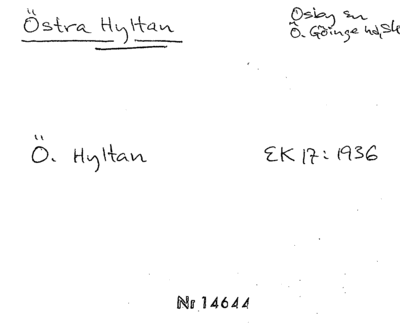 Östra Hyltan
Osby sn
Ö. Göinge hd, Sk
Ö. Hyltan
EK 17: 1936
Nr 14644